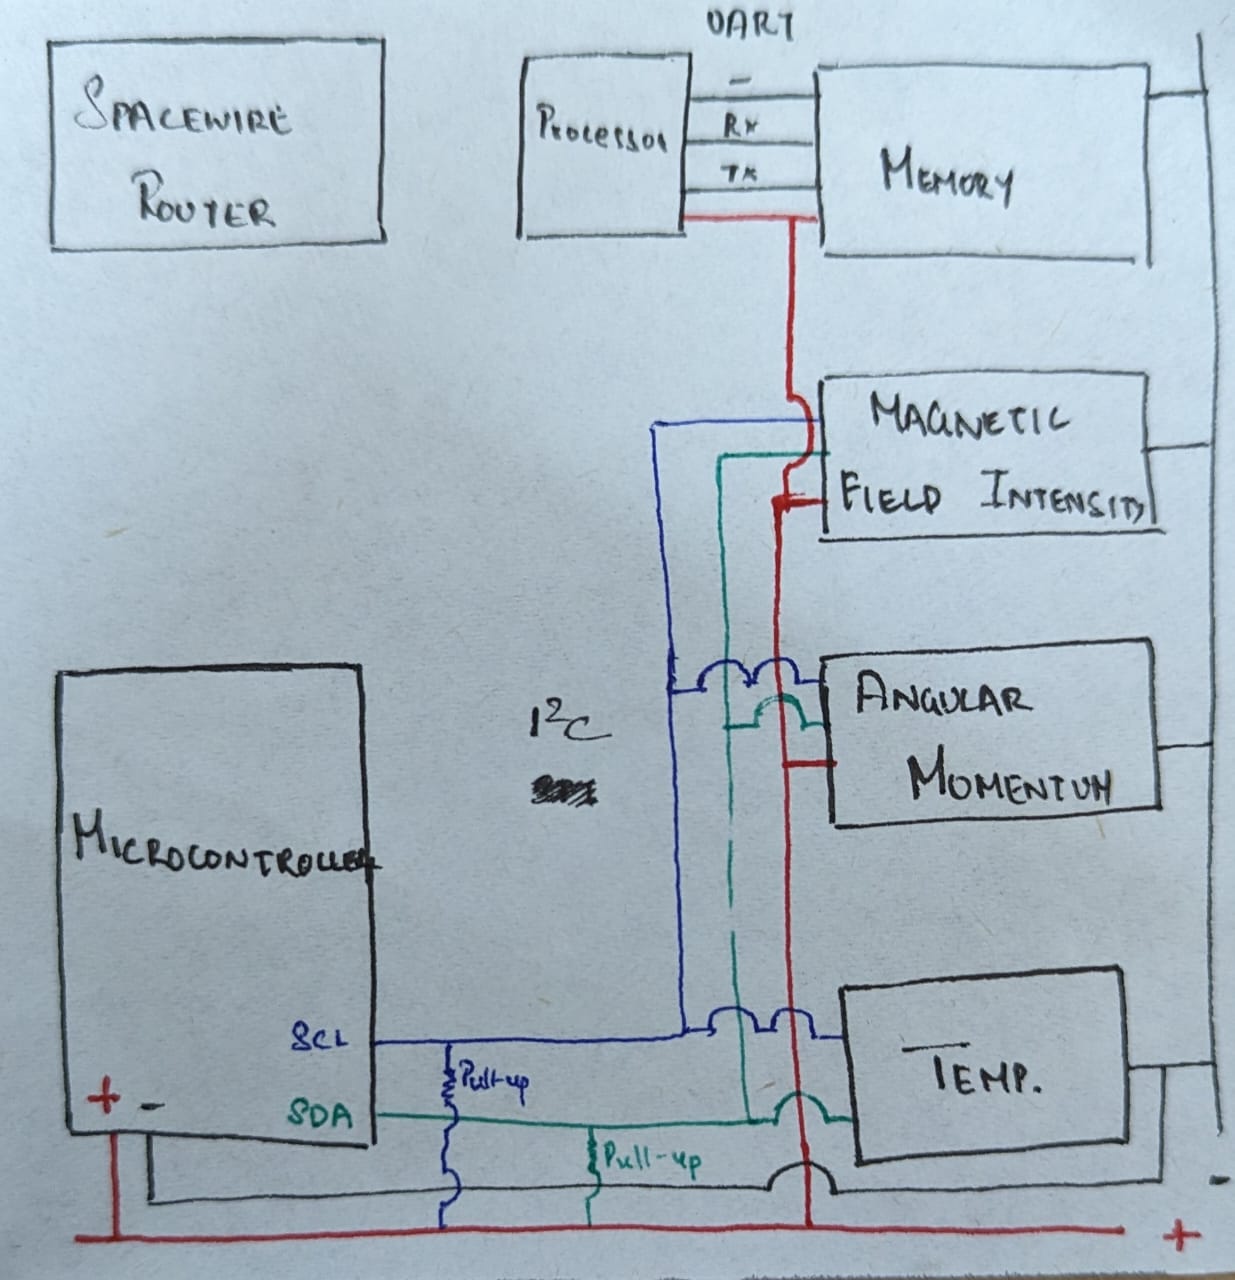 UART
SPACEWIRE
ROUTER
Processor
-
Rx
Tx
MEMORY
MAGNETIC
FIELD INTENSITY
I²C
ANGULAR
MOMENTUM
MICROCONTROLLER
SCL
Pull-up
+ -
SDA
Pull-up
TEMP.
-
+